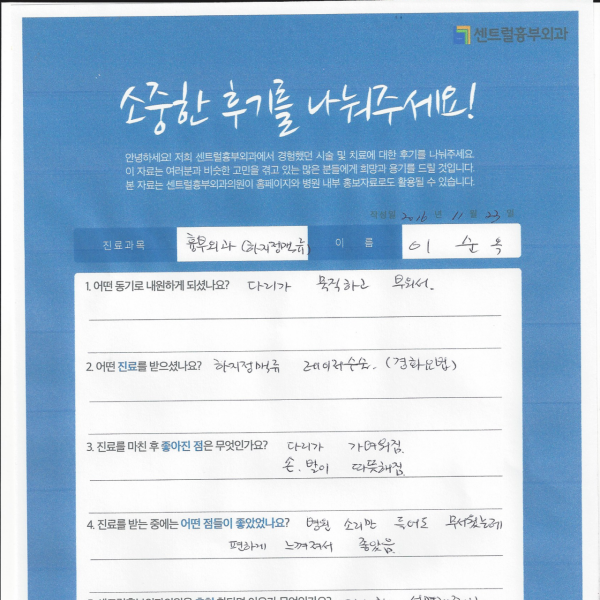 센트럴흉부외과
소중한 후기를 나눠주세요!
안녕하세요! 저희 센트럴흉부외과에서 경험했던 시술 및 치료에 대한 후기를 나눠주세요.
이 자료는 여러분과 비슷한 고민을 겪고 있는 많은 분들에게 희망과 용기를 드릴 것입니다.
본 자료는 센트럴흉부외과의원이 홈페이지와 병원 내부 홍보자료로도 활용될 수 있습니다.
작성일 2016 년 11 월 23 일
진료과목 흉부외과 (하지정맥류) 이 름 이 순 옥
1. 어떤 동기로 내원하게 되셨나요? 다리가 묵직하고 부워서.
2. 어떤 진료를 받으셨나요? 하지정맥류 레이저수술. (경화요법)
3. 진료를 마친 후 좋아진 점은 무엇인가요? 다리가 가벼워짐.
손. 발이 따뜻해짐.
4. 진료를 받는 중에는 어떤 점들이 좋았었나요? 병원 소리만 들어도 무서웠는데
편하게 느껴져서 좋았음.